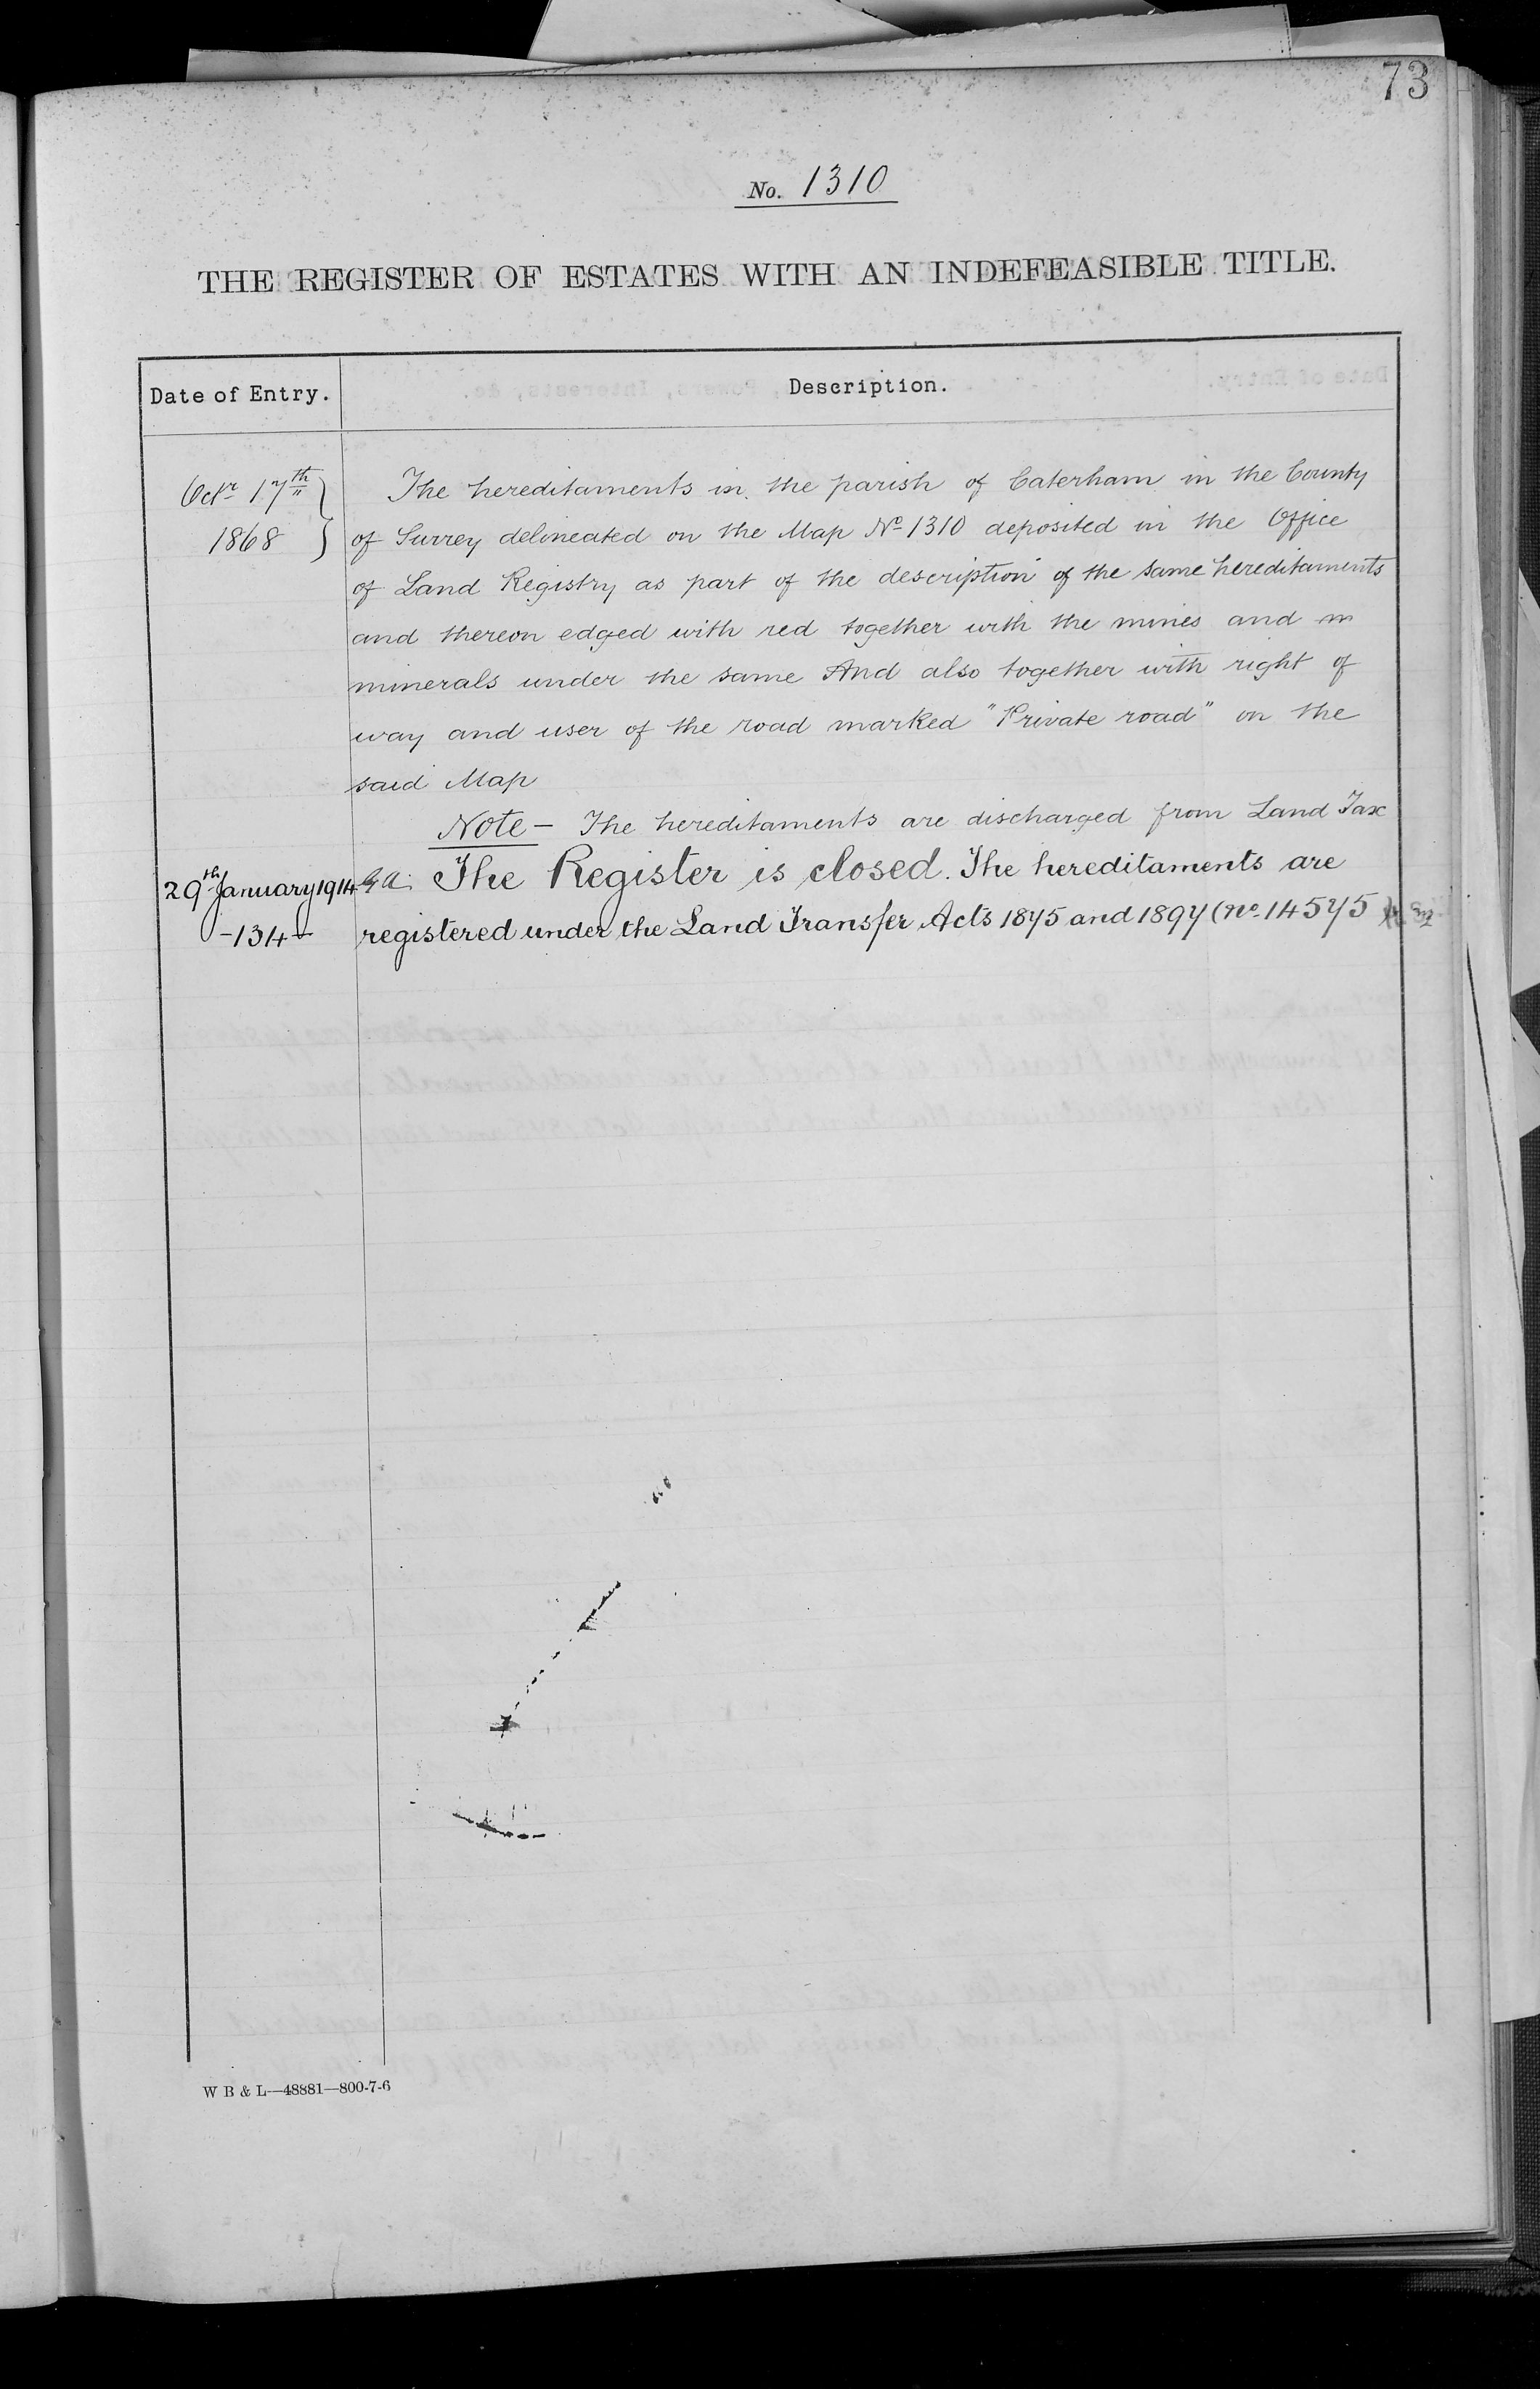 73
No. 1310
THE REGISTER OF ESTATES WITH AN INDEFEASIBLE TITLE.
Date of Entry. Description.
Octr 17th The hereditaments in the parish of Caterham in the County
1868 of Surrey delineated on the Map No 1310 deposited in the Office
of Land Registry as part of the description of the same hereditaments
and thereon edged with red together with the mines and m
minerals under the same And also together with right of
way and user of the road marked "Private road" on the
said Map
Note - The hereditaments are discharged from Land Tax
29th January 1914 The Register is closed. The hereditaments are
-134- registered under the Land Transfer Acts 1875 and 1897 (No. 14575
W B & L—48881—800-7-6